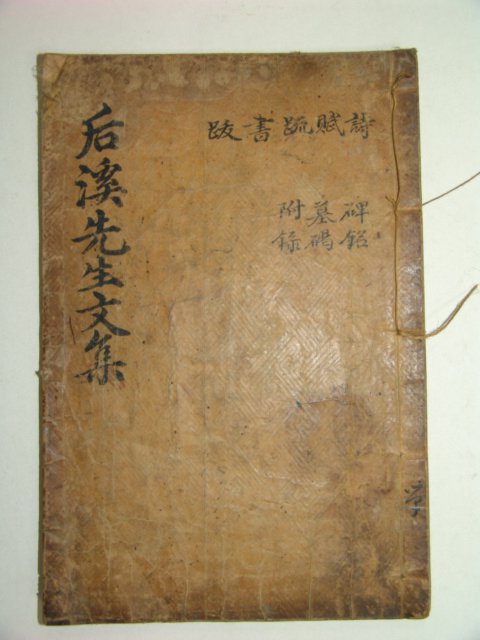 后溪先生文集
詩賦䟽書跋
碑銘
墓碣
附錄